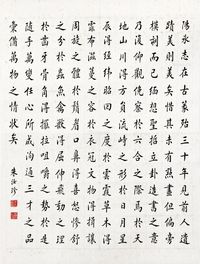 陽氷志在古篆殆三十年見前人遺
蹟美則美矣惜未有點畫但偏旁
模刻而已緬想聖哲立卦造書之意
乃復仰觀俯察於六合之際焉於天
地山川得方員流峙之形於日月星
辰得經緯昭回之度於雲霞草木得
霏布滋蔓之容於衣冠文物得揖讓
周旋之體於眉口鼻得喜怒慘舒
之分於蟲魚禽獸得屈伸飛動之理
於齒牙骨角得咀嚼之勢於是
隨手萬變任心所成通三才之品
彙備萬物之情狀矣
朱汝珍